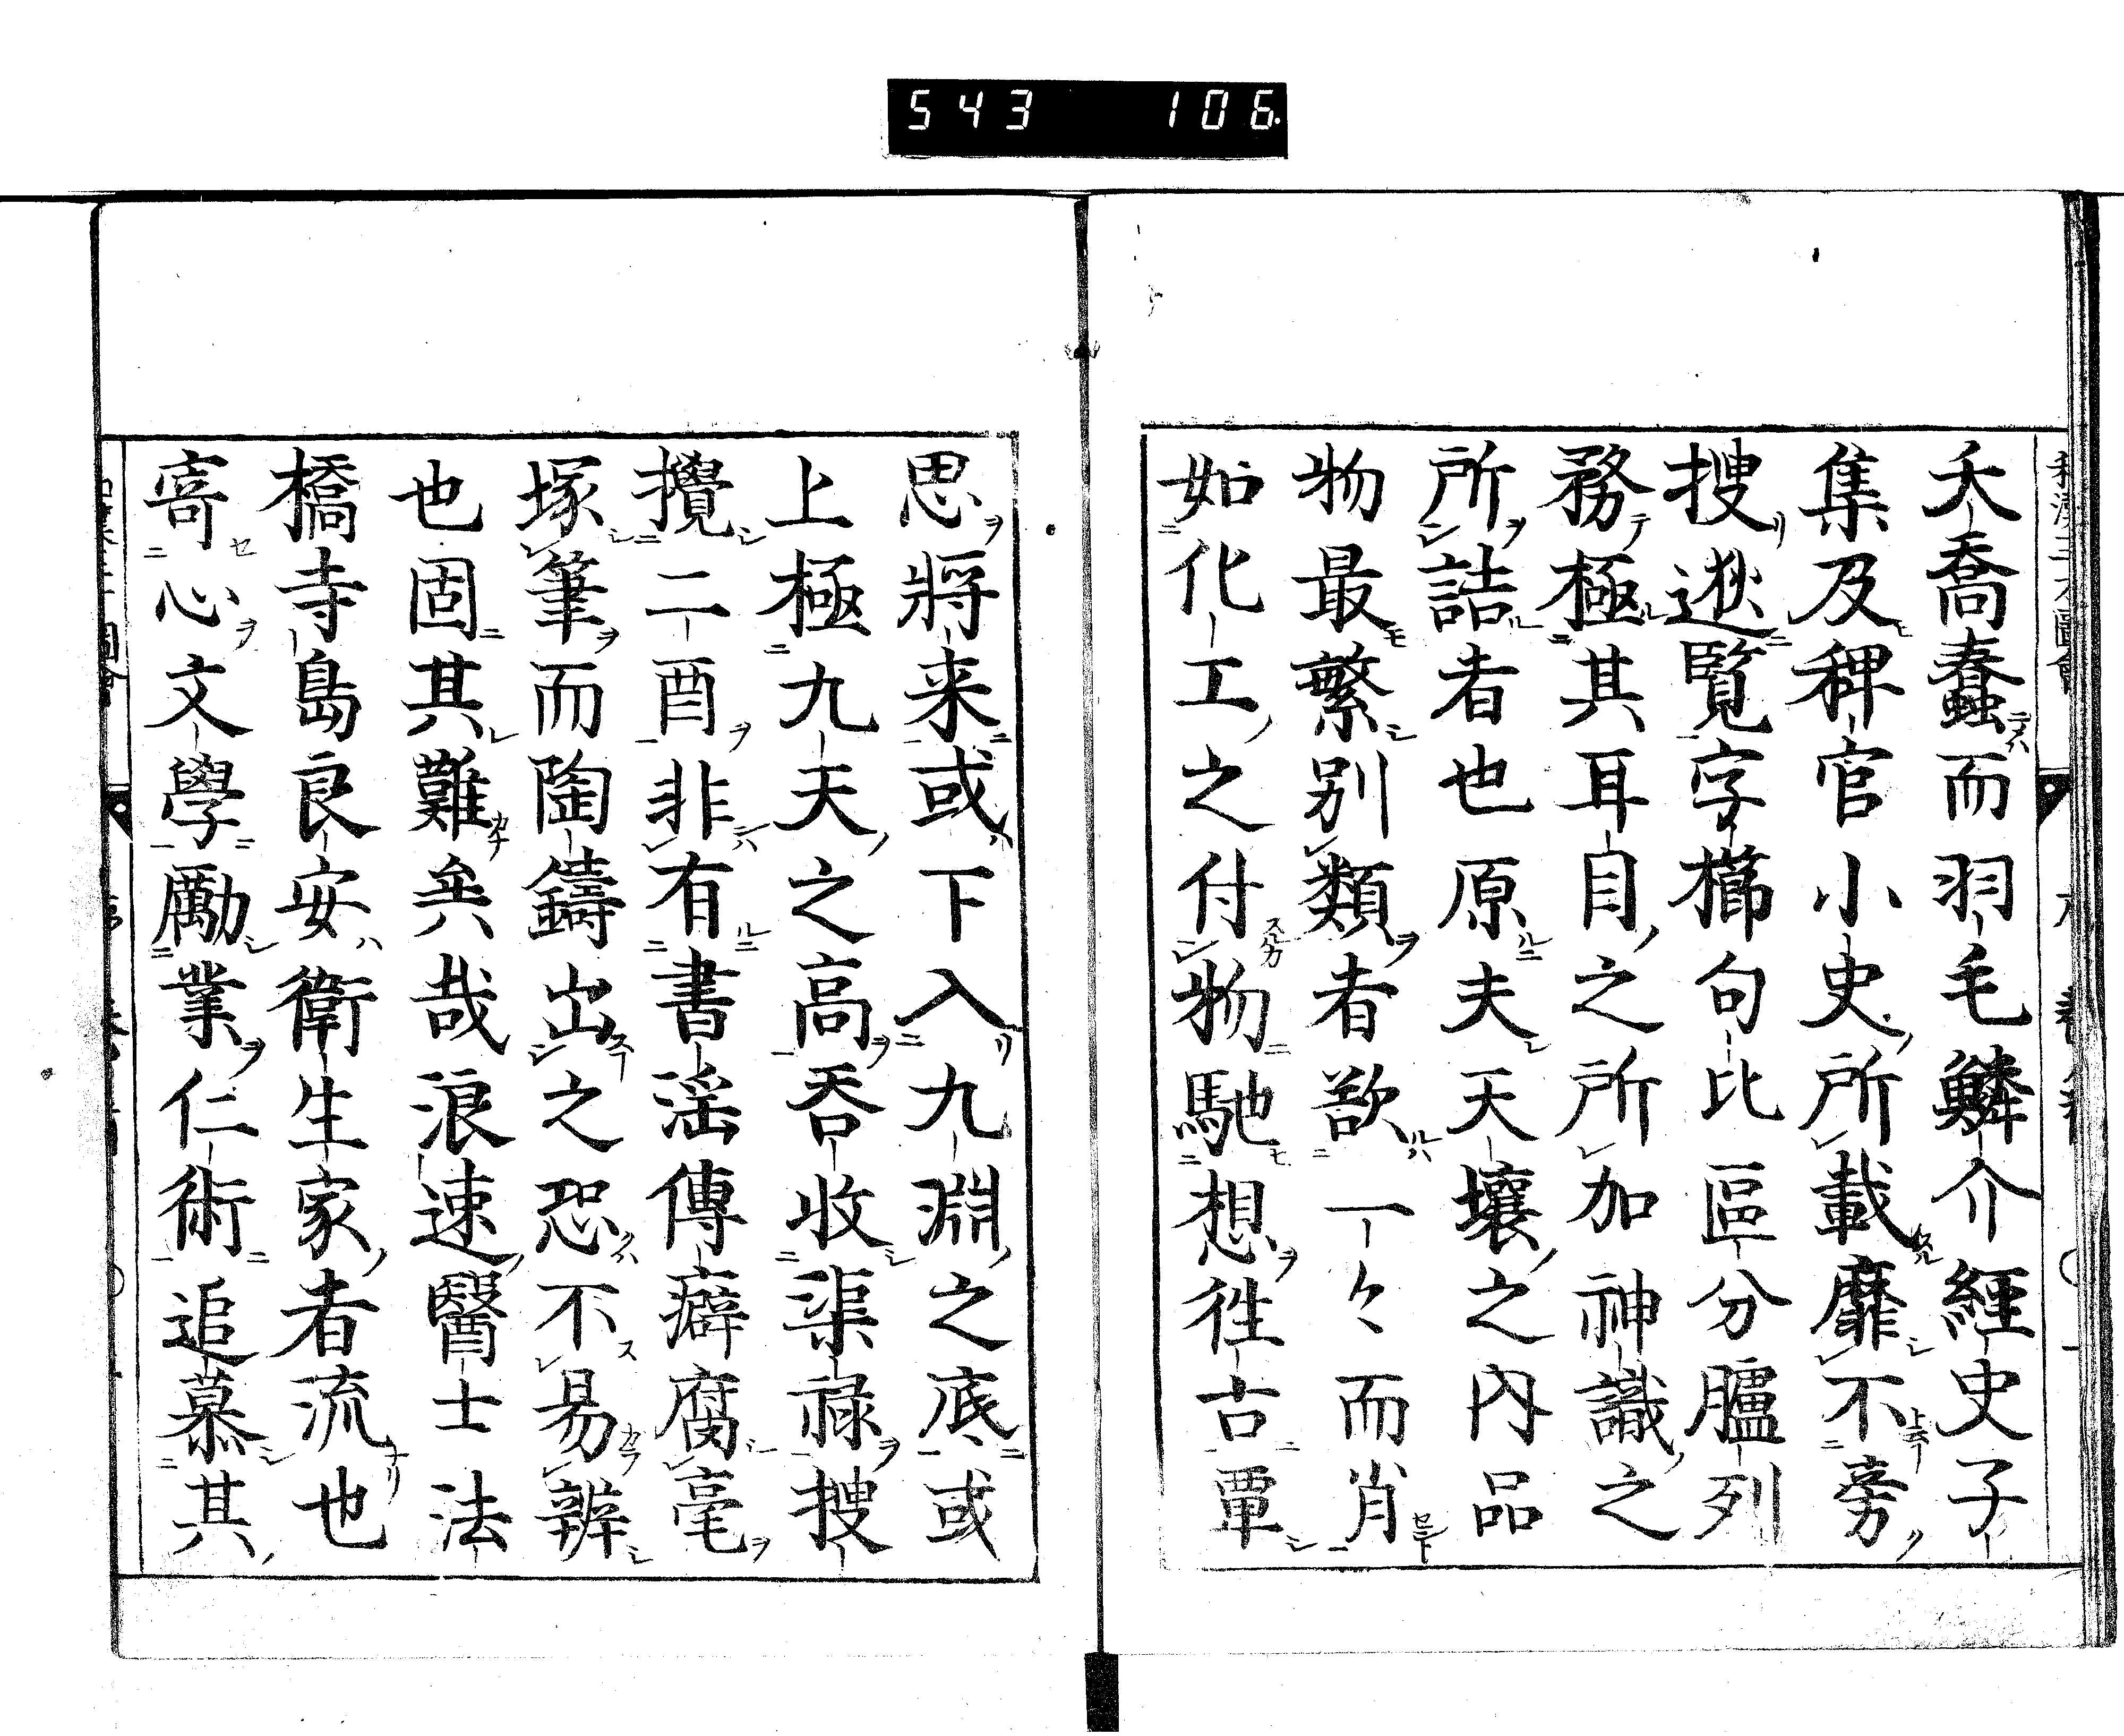 543 106
夭喬蠢而羽毛鱗介經史子
集及稗官小史所載靡不旁
搜逖覽字櫛句比區分臚列
務極其耳目之所加神識之
所詰者也原夫天壤之内品
物最繁別類者欲一々而肖
如化工之付物馳想徃古覃
思將来或下入九淵之底或
上極九天之高呑收渠祿搜
攪二酉非有書滛傳癖腐毫
塚筆而陶鑄出之恐不易辨
也固其難矣哉浪速醫士法
橋寺島良安衛生家者流也
寄心文學勵業仁術追慕其